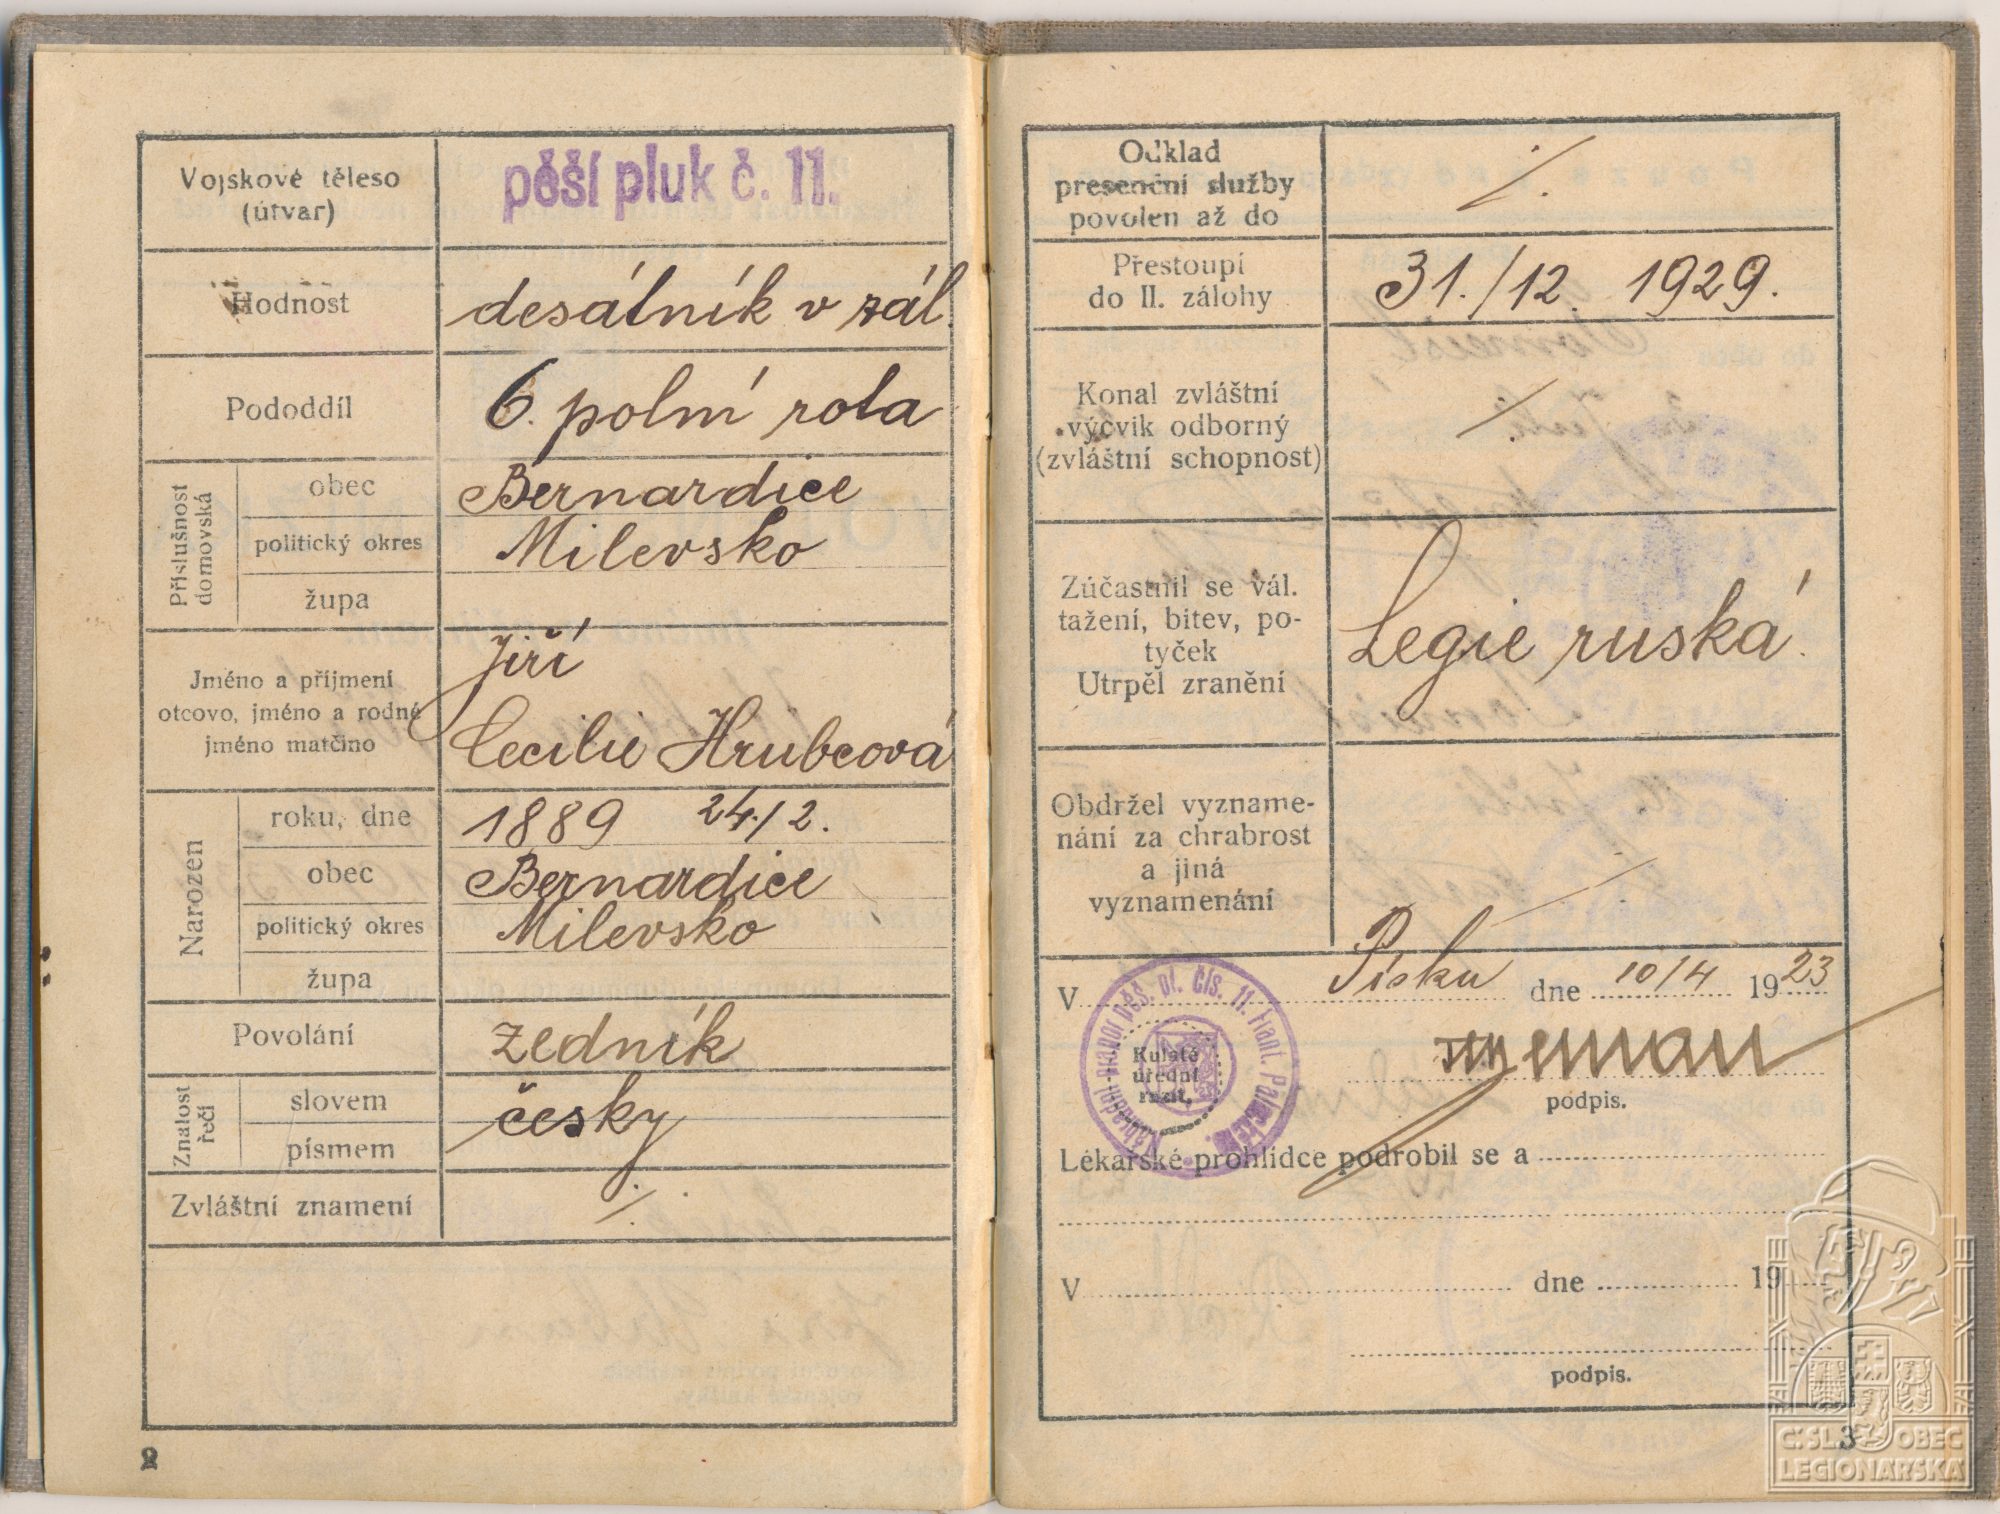 Vojskové těleso
(útvar)
pěší pluk č. 11.
Hodnost
desátník v zál.
Pododdíl
6. polní rota
Příslušnost
domovská
obec
Bernardice
politický okres
Milevsko
župa
Jméno a příjmení
otcovo, jméno a rodné
jméno matčino
Jiří
Cecilie Hrubcová
Narozen
roku, dne
1889 24./2.
obec
Bernardice
politický okres
Milevsko
župa
Povolání
zedník
Znalost
řeči
slovem
písmem
česky
Zvláštní znamení
2
Odklad
presenční služby
povolen až do
Přestoupí
do II. zálohy
31./12. 1929.
Konal zvláštní
výcvik odborný
(zvláštní schopnost)
Zúčastnil se vál.
tažení, bitev, po-
tyček
Utrpěl zranění
Legie ruská.
Obdržel vyzname-
nání za chrabrost
a jiná
vyznamenání
V Písku dne 10/4 1923
Náhradní prapor pěš. pl. čís. 11. Frant. Palackého.
Kulaté
úřední
razít.
podpis.
Lékařské prohlídce podrobil se a
V dne 19
podpis.
3
Č. SL. OBEC
LEGIONÁŘSKÁ